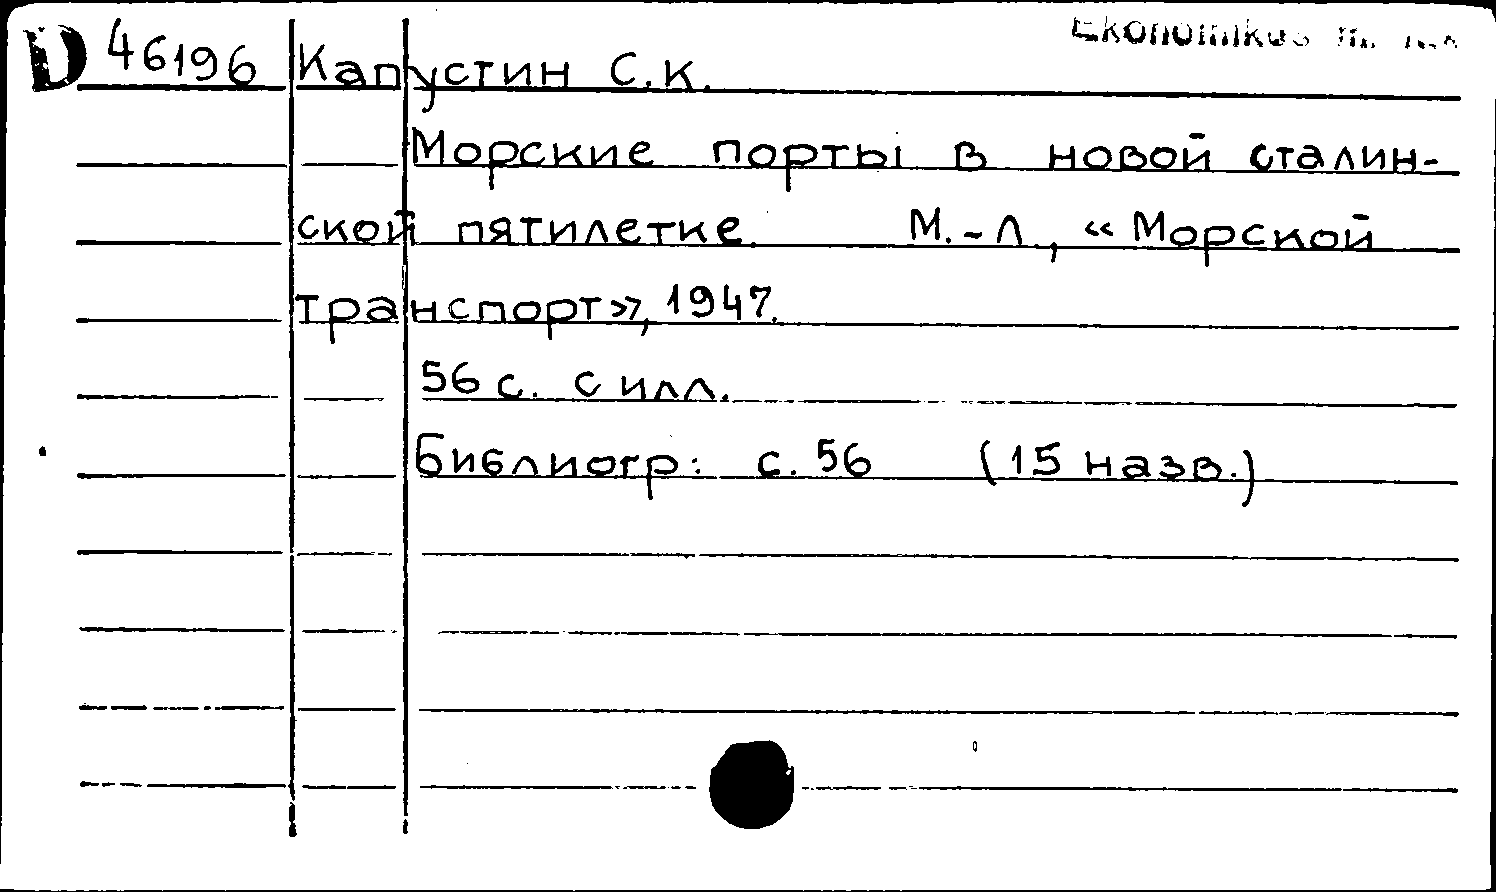 Ekonomikos
D 46196 Капустин С.К.
Морские порты в новой сталин-
ской пятилетке. М.-Л., «Морской
транспорт», 1947.
56 с. с илл.
Библиогр: с. 56 (15 назв.)